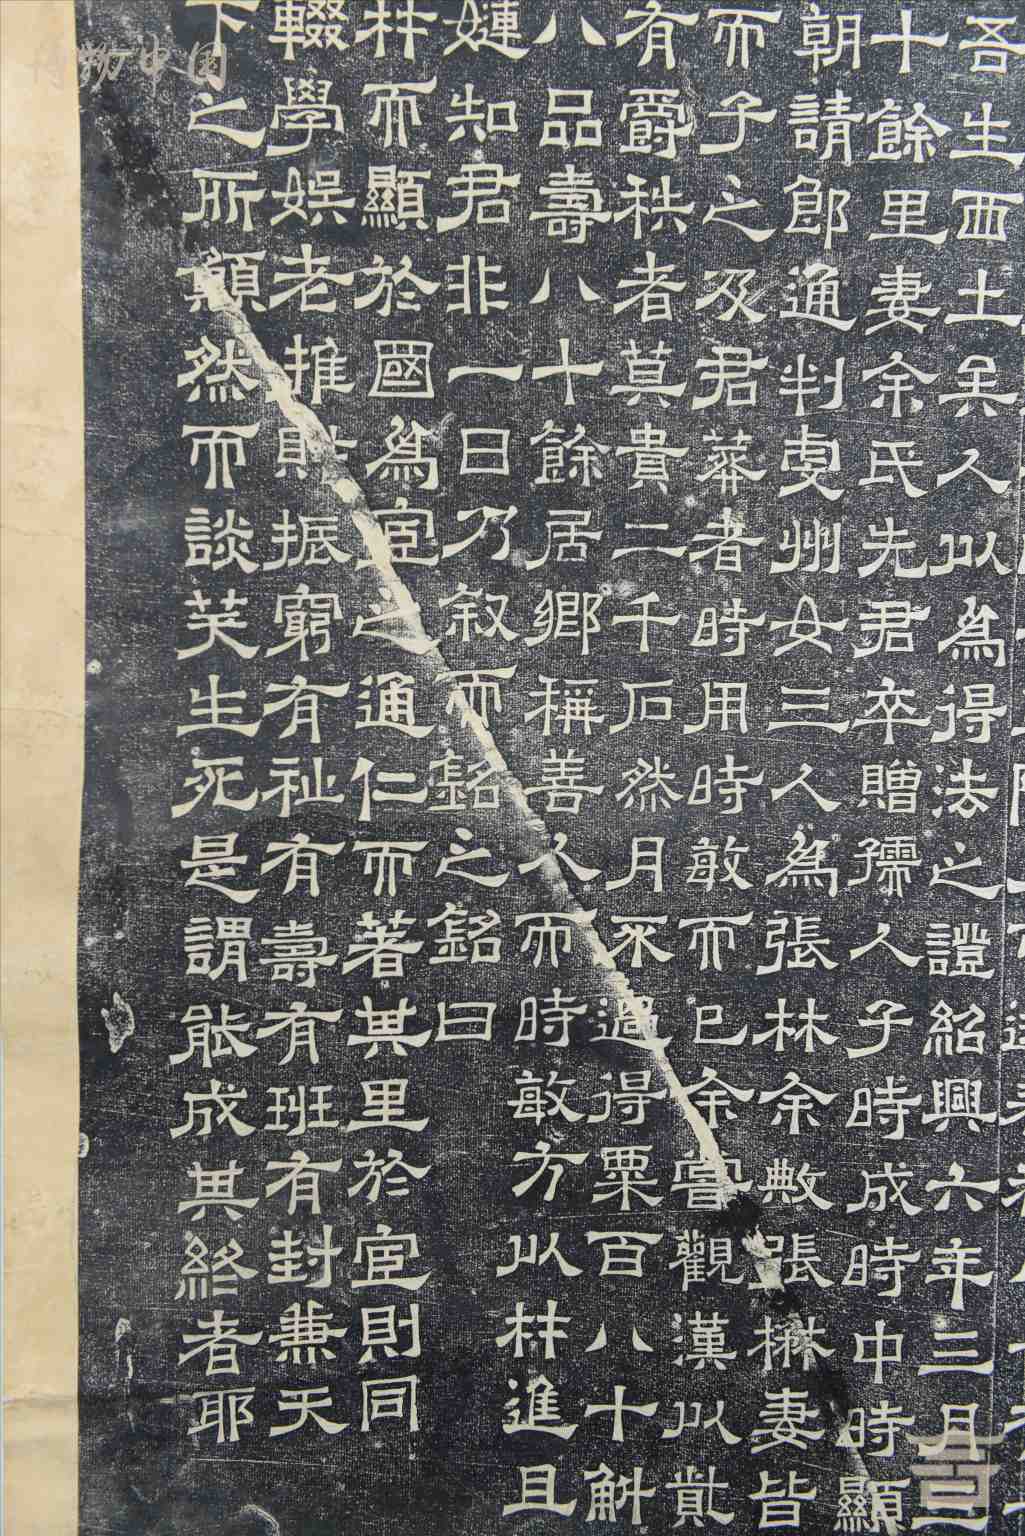 吾生西土吴人以為得法之證紹興六年三月三
十餘里妻余氏先君卒贈孺人子時成時中時顯
朝請郎通判虔州女三人為張林余敷張楙妻皆
而子之及君葬者時用時敏而已余嘗觀漢以貲
有爵秩者莫貴二千石然月不過得粟百八十斛
八品壽八十餘居鄉稱善人而時敏方以材進且
娷知君非一日乃叙而銘之銘曰
材而顯於國為宦之通仁而著其里於宦則同
輟學娱老推貲振窮有祉有壽有班有封兼天
下之所顧然而談笑生死是謂能成其終者耶
博物中国